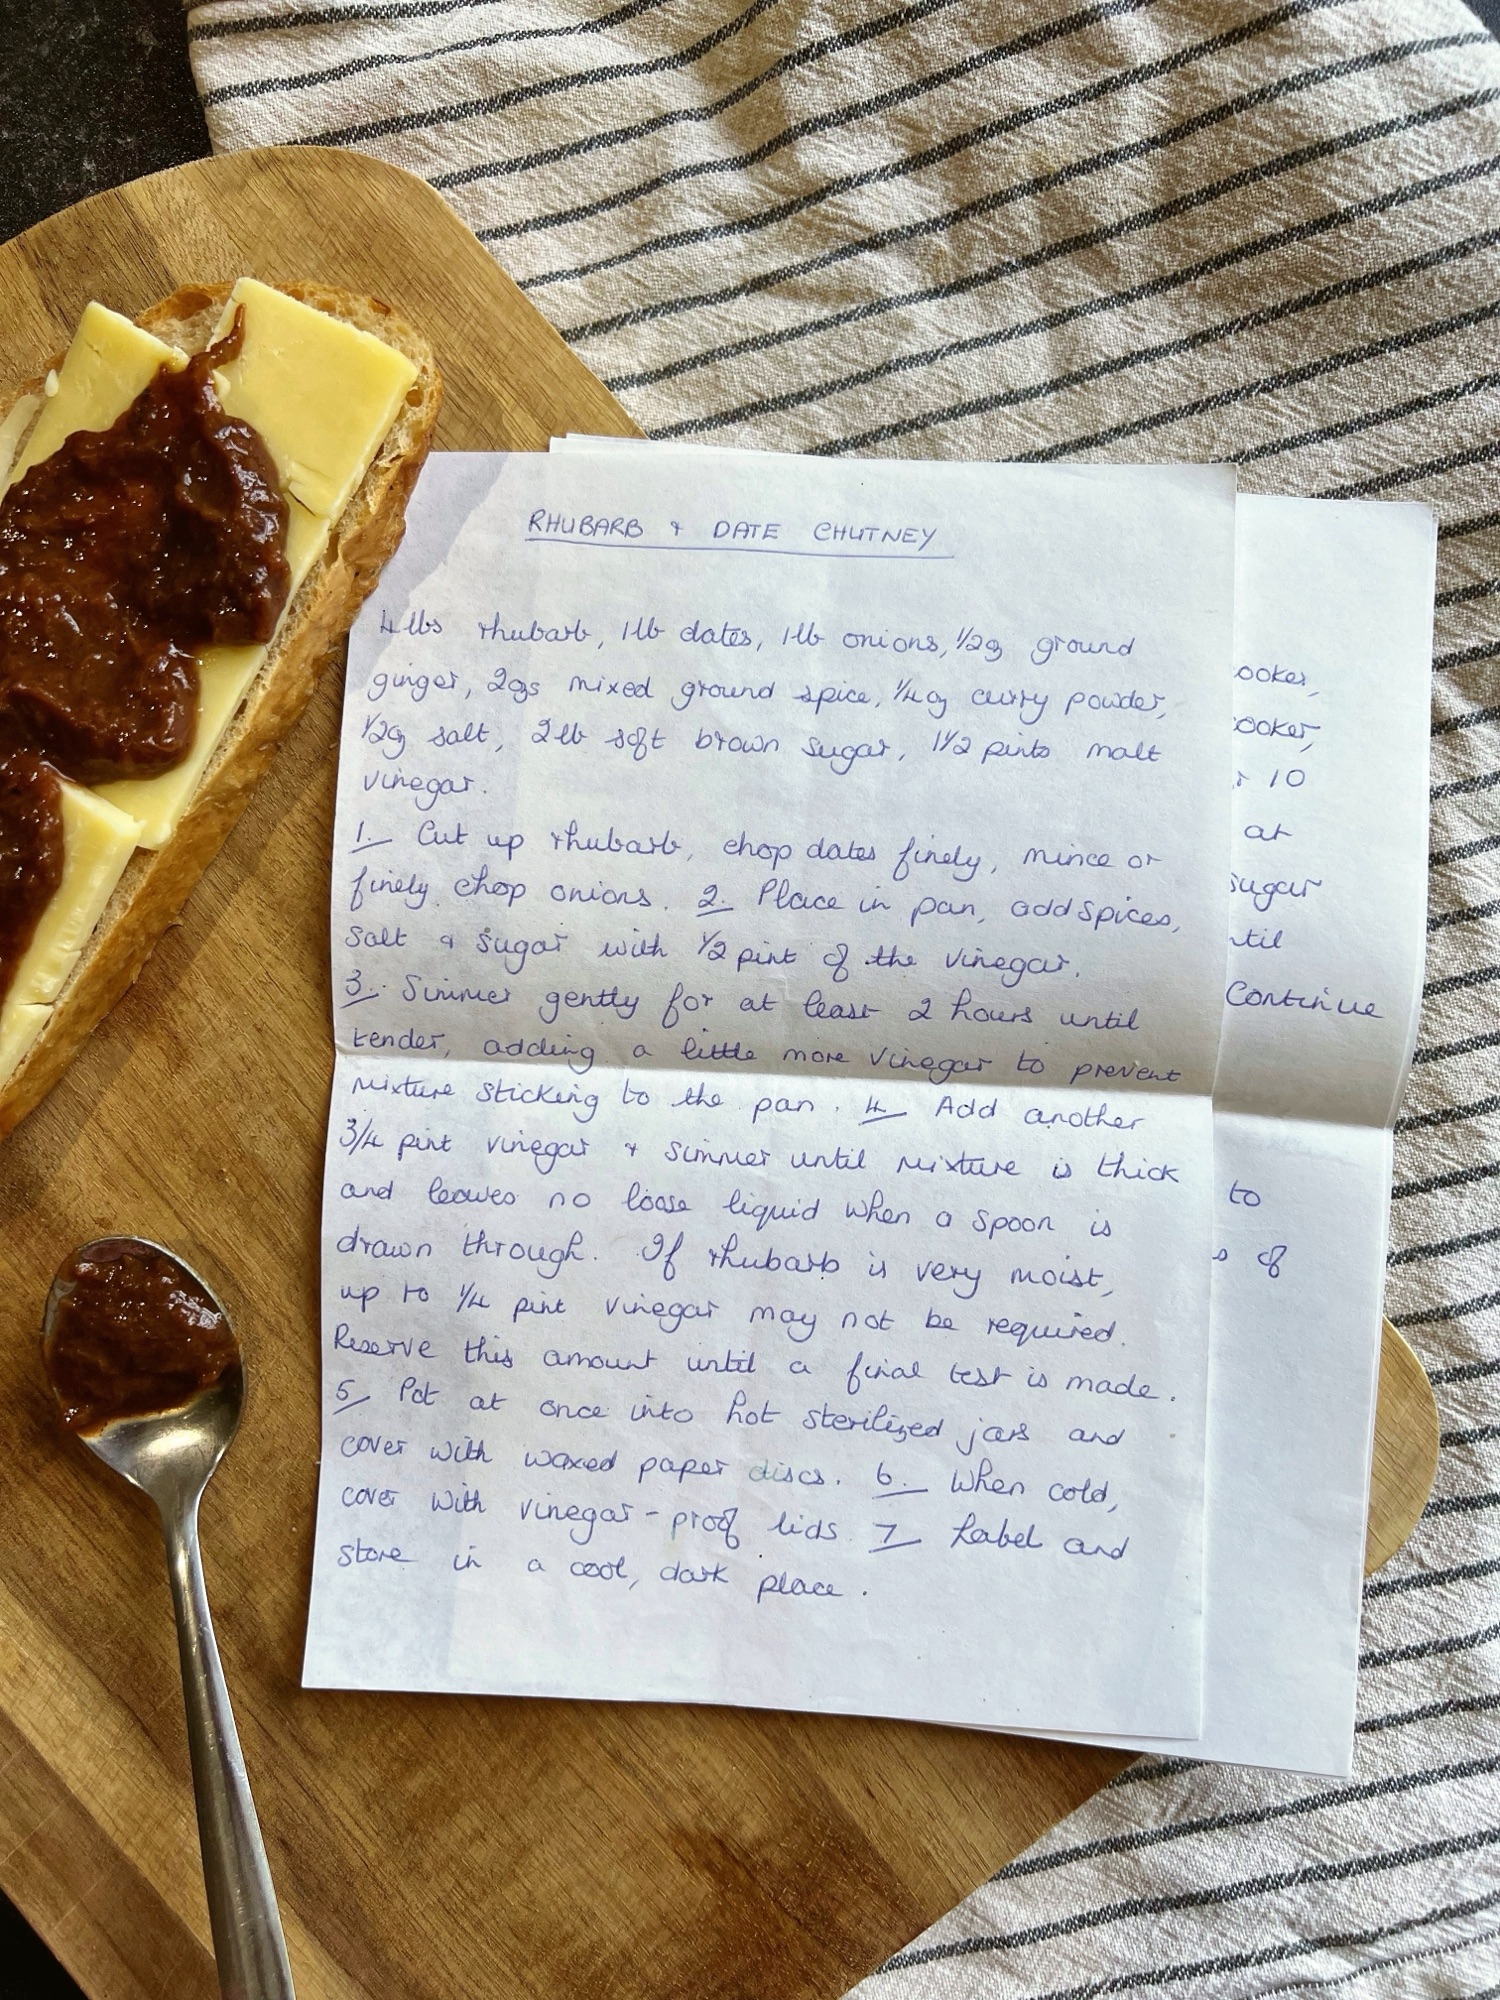 RHUBARB & DATE CHUTNEY
4 lbs rhubarb, 1lb dates, 1lb onions, 1/2oz ground
ginger, 2ozs mixed ground spice, 1/4oz curry powder,
1/2oz salt, 2lb soft brown sugar, 1 1/2 pints malt
vinegar.
1. Cut up rhubarb, chop dates finely, mince or
finely chop onions. 2. Place in pan, add spices,
salt & sugar with 1/2 pint of the vinegar.
3. Simmer gently for at least 2 hours until
tender, adding a little more vinegar to prevent
mixture sticking to the pan. 4. Add another
3/4 pint vinegar & simmer until mixture is thick
and leaves no loose liquid when a spoon is
drawn through. If rhubarb is very moist,
up to 1/4 pint vinegar may not be required.
Reserve this amount until a final test is made.
5. Pot at once into hot sterilized jars and
cover with waxed paper discs. 6. When cold,
cover with vinegar-proof lids. 7. Label and
store in a cool, dark place.
ooker,
ooker,
10
at
sugar
til
Continue
to
of